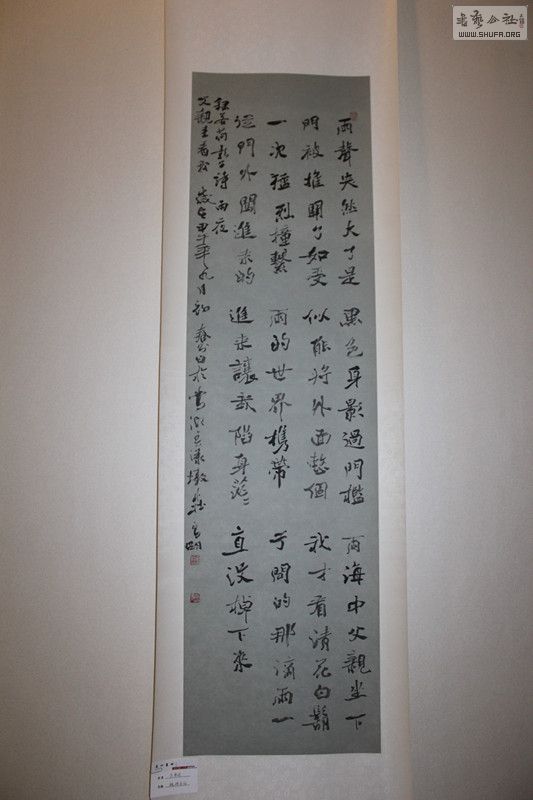 雨聲突然大了是
門被推開了如受
一次猛烈撞擊
從門外闖進來的
黑色身影過門檻
似能將外面整個
雨的世界携帶
進來讓我陷身茫〻
雨海中父親坐下
我才看清花白鬍
子間的那滴雨一
直没掉下來
詩雨夜
父親来看我 歲在甲午年九月初
書法公社
WWW.SHUFA.ORG